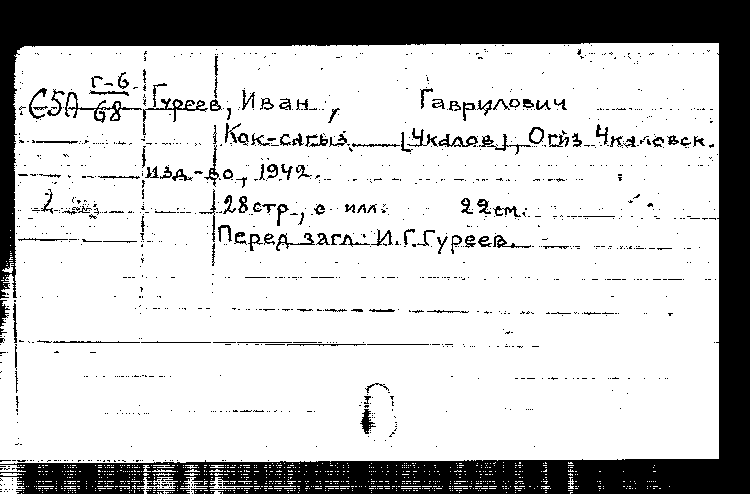 Г-6
Є5А 68 Гуреев, Иван, Гаврилович
Кок-сагыз. [Чкалов], Огиз Чкаловск.
изд-во, 1942.
2 28 стр., с илл. 22 см.
Перед загл.: И.Г. Гуреев.